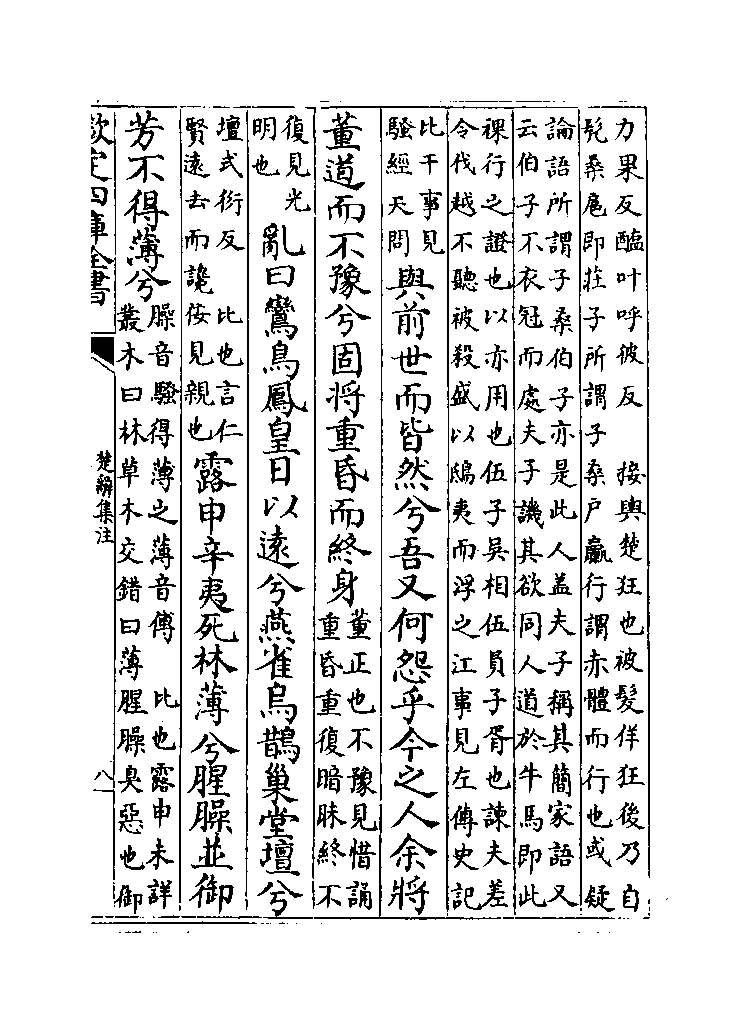 力果反醢叶呼彼反　接輿楚狂也被髮佯狂後乃自
髠桑扈即莊子所謂子桑户臝行謂赤體而行也或疑
論語所謂子桑伯子亦是此人盖夫子稱其簡家語又
云伯子不衣冠而處夫子譏其欲同人道於牛馬即此
裸行之證也以亦用也伍子吳相伍員子胥也諫夫差
令伐越不聽被殺盛以鴟夷而浮之江事見左傳史記
比干事見
騷經天問
與前世而皆然兮吾又何怨乎今之人余將
董道而不豫兮固將重昏而終身
董正也不豫見惜誦
重昏重復暗昧終不
復見光
明也
亂曰鸞鳥鳳皇日以遠兮燕雀烏鵲巢堂壇兮
壇式衍反　比也言仁
賢遠去而讒佞見親也
露申辛夷死林薄兮腥臊並御
芳不得薄兮
臊音騷得薄之薄音傅　比也露申未詳
叢木曰林草木交錯曰薄腥臊臭惡也御
欽定四庫全書
楚辭集注
八